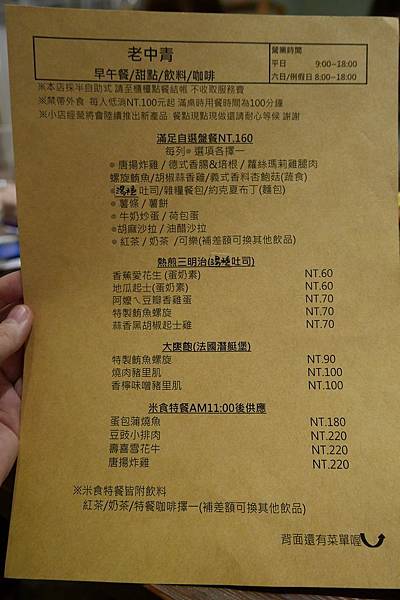 老中青
早午餐/甜點/飲料/咖啡
營業時間
平日 9:00~18:00
六日/例假日 8:00~18:00
※本店採半自助式 請至櫃檯點餐結帳 不收取服務費
※禁帶外食 每人低消NT.100元起 滿桌時用餐時間為100分鐘
※小店經營將會陸續推出新產品 餐點現點現做還請耐心等候 謝謝
滿足自選盤餐NT.160
每列◎選項各擇一
◎唐揚炸雞 / 德式香腸&培根 / 蘿絲瑪莉雞腿肉
螺旋鮪魚/胡椒蒜香雞/義式香料杏鮑菇(蔬食)
◎湯種吐司/雜糧餐包/約克夏布丁(麵包)
◎薯條 / 薯餅
◎牛奶炒蛋 / 荷包蛋
◎胡麻沙拉 / 油醋沙拉
◎紅茶 / 奶茶 /可樂(補差額可換其他飲品)
熱煎三明治(湯種吐司)
香蕉愛花生 (蛋奶素) NT.60
地瓜起士(蛋奶素) NT.60
阿嬤ㄟ豆瓣香雞蛋 NT.70
特製鮪魚螺旋 NT.70
蒜香黑胡椒起士雞 NT.70
大腹飽(法國潛艇堡)
特製鮪魚螺旋 NT.90
燒肉豬里肌 NT.100
香檸味噌豬里肌 NT.100
米食特餐AM11:00後供應
蛋包蒲燒魚 NT.180
豆豉小排肉 NT.220
壽喜雪花牛 NT.220
唐揚炸雞 NT.220
※米食特餐皆附飲料
紅茶/奶茶/特餐咖啡擇一(補差額可換其他飲品)
背面還有菜單喔